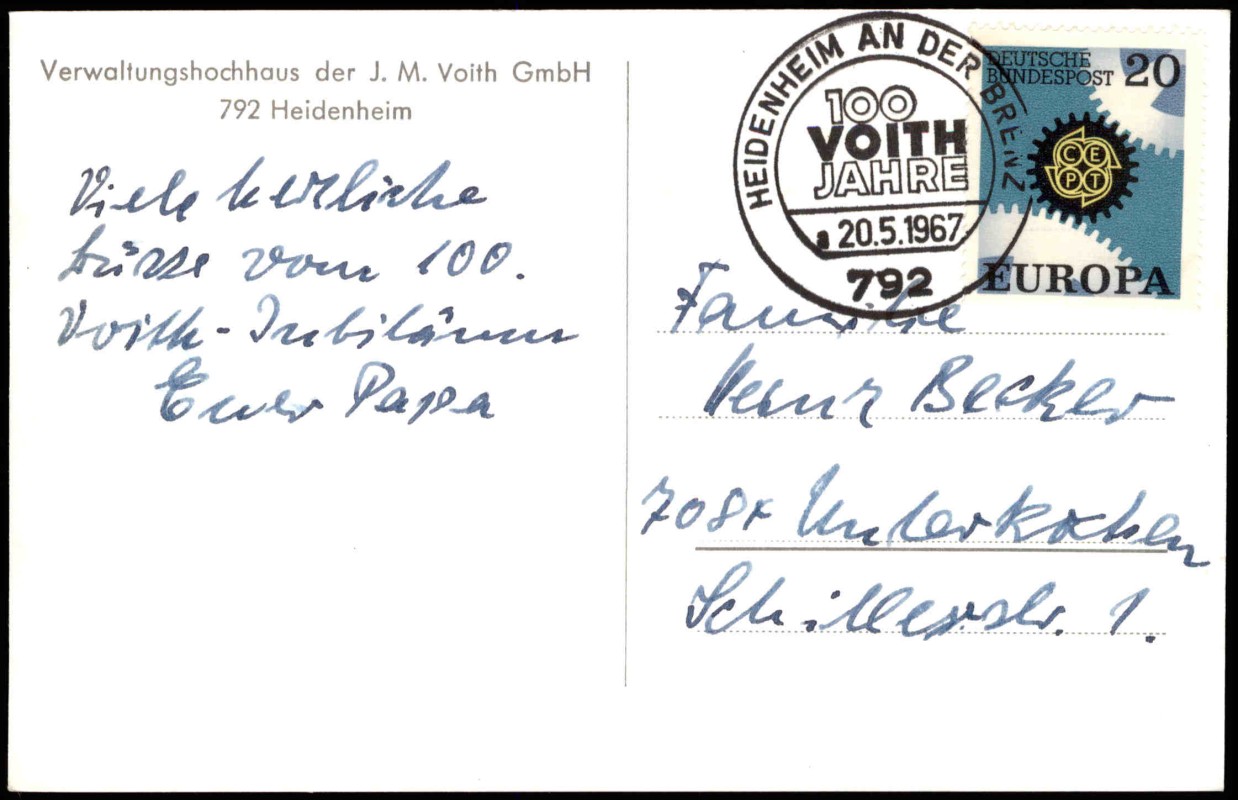 Verwaltungshochhaus der J. M. Voith GmbH
792 Heidenheim
Viele herzliche
Grüsse vom 100.
Voith-Jubiläum
Euer Papa
HEIDENHEIM AN DER BRENZ
100
VOITH
JAHRE
a 20.5.1967
792
DEUTSCHE
BUNDESPOST 20
CEPT
EUROPA
Familie
Becker
Unterkochen
Schillerstr. 1.